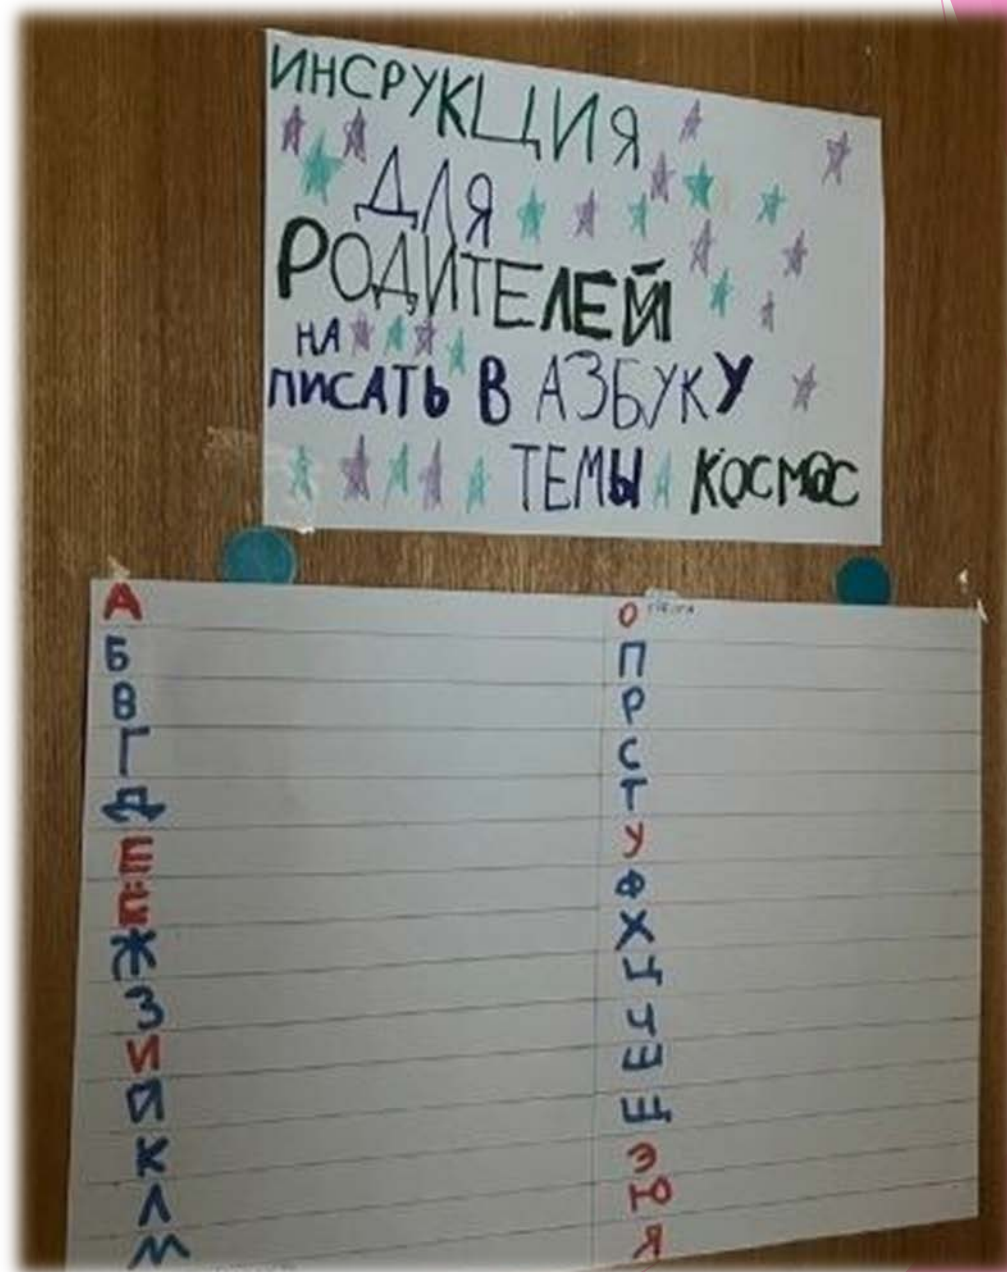 ИНСРУКЦИЯ
ДЛЯ
РОДИТЕЛЕЙ
НА
ПИСАТЬ В АЗБУКУ
ТЕМЫ КОСМОС
А
Б
В
Г
Д
Е
Ё
Ж
З
И
Й
К
Л
М
О
П
Р
С
Т
У
Ф
Х
Ц
Ч
Ш
Щ
Э
Ю
Я